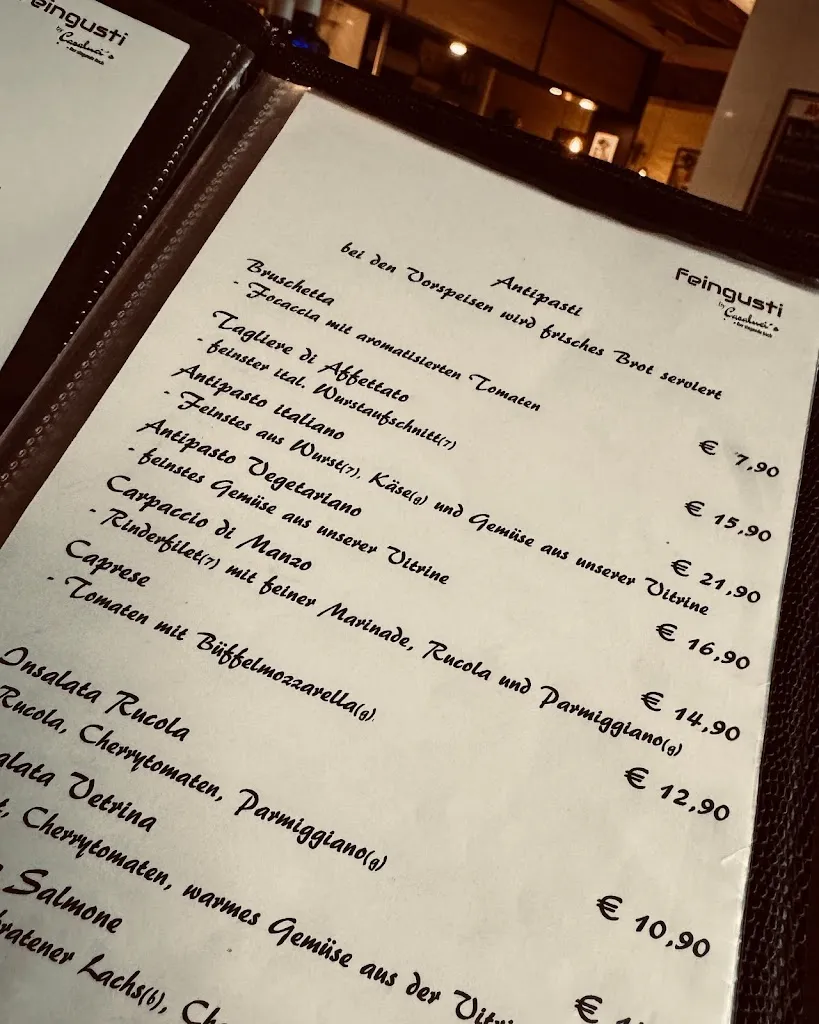 Feingusti
by Casaluci's
Feingusti
by Casaluci's
Antipasti
bei den Vorspeisen wird frisches Brot serviert
Bruschetta
- Focaccia mit aromatisierten Tomaten € 7,90
Tagliere di Affettato
- feinster ital. Wurstaufschnitt(7) € 15,90
Antipasto italiano
- Feinstes aus Wurst(7), Käse(g) und Gemüse aus unserer Vitrine € 21,90
Antipasto Vegetariano
- feinstes Gemüse aus unserer Vitrine € 16,90
Carpaccio di Manzo
- Rinderfilet(7) mit feiner Marinade, Rucola und Parmiggiano(g) € 14,90
Caprese
- Tomaten mit Büffelmozzarella(g). € 12,90
Insalata Rucola
Rucola, Cherrytomaten, Parmiggiano(g) € 10,90
alata Vetrina
t, Cherrytomaten, warmes Gemüse aus der Vitri €
Salmone
bratener Lachs(b), Ch